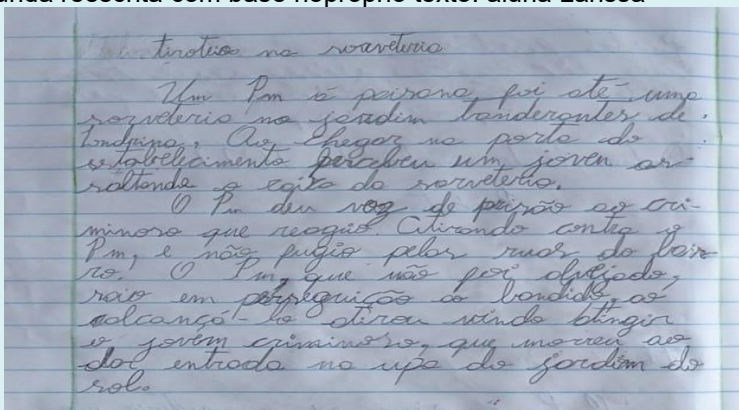 unda reescrita com base nopróprio texto: aluna Larissa
tiroteio na sorveteria
Um Pm à paisana foi até uma
sorveteria no jardim banderantes de
Londrina, Ao chegar na porta do
estabelecimento percebeu um joven as-
saltando o caixa da sorveteria.
O Pm deu voz de prisão ao cri-
minoso que reagio Atirando contra o
Pm, e não fugio pelas ruas do bair-
ro. O Pm, que não foi alvejado,
saio em perseguição ao bandido, ao
alcançá-lo atirou vindo atingir
o jovem criminoso, que morreu ao
dar entrada na upa do jardim do
sol.